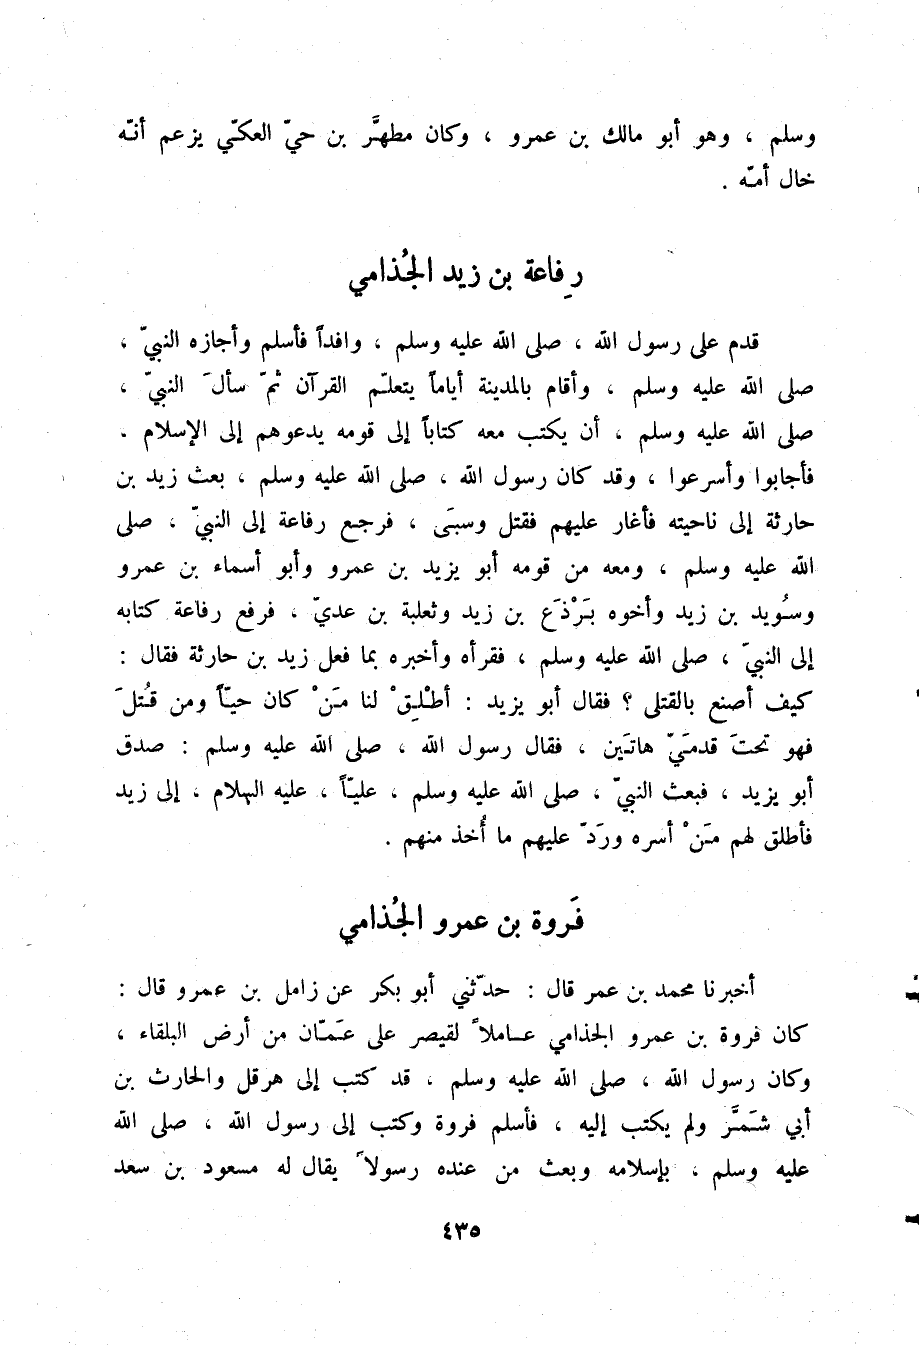 وسلم ، وهو أبو مالك بن عمرو ، وكان مطهَّر بن حيّ العكّي يزعم أنّه
خال أمّه .
رِفاعة بن زيد الجُذامي
قدم على رسول الله ، صلى الله عليه وسلم ، وافداً فأسلم وأجازه النبيّ ،
صلى الله عليه وسلم ، وأقام بالمدينة أياماً يتعلّم القرآن ثمّ سألَ النبيّ ،
صلى الله عليه وسلم ، أن يكتب معه كتاباً إلى قومه يدعوهم إلى الإسلام .
فأجابوا وأسرعوا ، وقد كان رسول الله ، صلى الله عليه وسلم ، بعث زيد بن
حارثة إلى ناحيته فأغار عليهم فقتل وسبَى ، فرجع رفاعة إلى النبيّ ، صلى
الله عليه وسلم ، ومعه من قومه أبو يزيد بن عمرو وأبو أسماء بن عمرو
وسُويد بن زيد وأخوه بَرْذَع بن زيد وثعلبة بن عديّ ، فرفع رفاعة كتابه
إلى النبيّ ، صلى الله عليه وسلم ، فقرأه وأخبره بما فعل زيد بن حارثة فقال :
كيف أصنع بالقتلى ؟ فقال أبو يزيد : أطْلِقْ لنا مَنْ كان حيّاً ومن قُتلَ
فهو تحتَ قدمَيّ هاتَين ، فقال رسول الله ، صلى الله عليه وسلم : صدق
أبو يزيد ، فبعث النبيّ ، صلى الله عليه وسلم ، عليّاً ، عليه السلام ، إلى زيد
فأطلق لهم مَنْ أسره وردّ عليهم ما أُخذ منهم .
فَروة بن عمرو الجُذامي
أخبرنا محمد بن عمر قال : حدّثني أبو بكر عن زامل بن عمرو قال :
كان فروة بن عمرو الجذامي عاملاً لقيصر على عَمّان من أرض البلقاء ،
وكان رسول الله ، صلى الله عليه وسلم ، قد كتب إلى هرقل والحارث بن
أبي شَمَّر ولم يكتب إليه ، فأسلم فروة وكتب إلى رسول الله ، صلى الله
عليه وسلم ، بإسلامه وبعث من عنده رسولاً يقال له مسعود بن سعد
٤٣٥